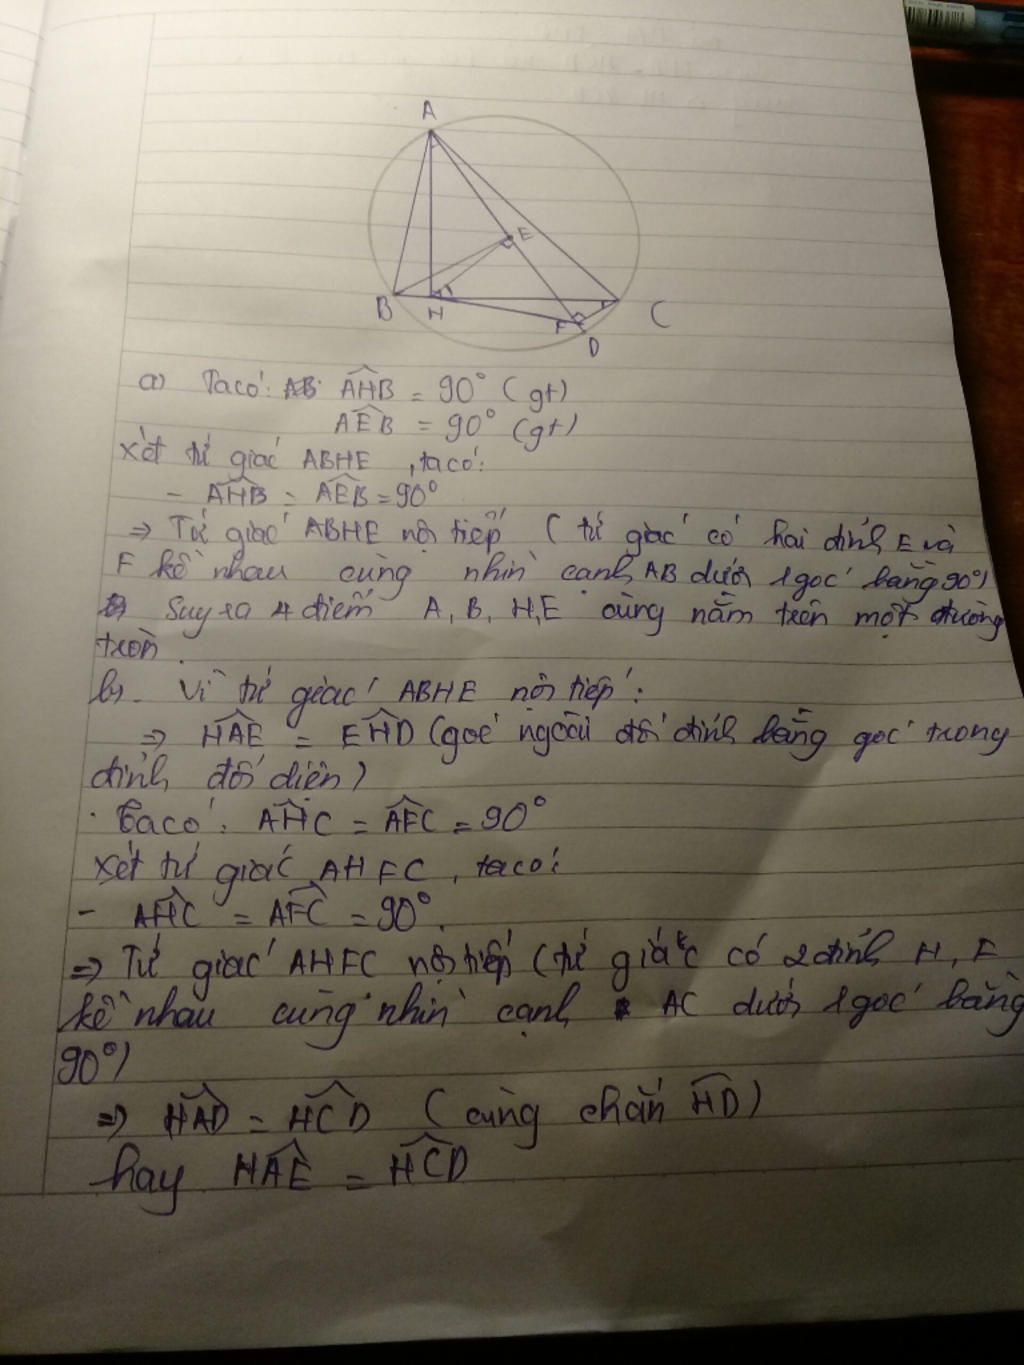 A
E
B
H
F
C
D
a) Ta có: AB AHB = 90° (gt)
AEB = 90° (gt)
xét tứ giác ABHE, ta có:
- AHB = AEB = 90°
=> Tứ giác ABHE nội tiếp (tứ giác có hai đỉnh E và
F kề nhau cùng nhìn cạnh AB dưới 1 góc bằng 90°)
Suy ra 4 điểm A, B, H, E cùng nằm trên một đường
tròn.
b). Vì tứ giác ABHE nội tiếp:
=> HAE = EHD (góc ngoài đối đỉnh bằng góc trong
đỉnh đối diện)
. Ta có: AHC = AFC = 90°
Xét tứ giác AHFC, ta có:
- AHC = AFC = 90°.
=> Tứ giác AHFC nội tiếp (tứ giác có 2 đỉnh H, F
kề nhau cùng nhìn cạnh AC dưới 1 góc bằng
90°)
=> HAD = HCD (cùng chắn HD)
hay HAE = HCD